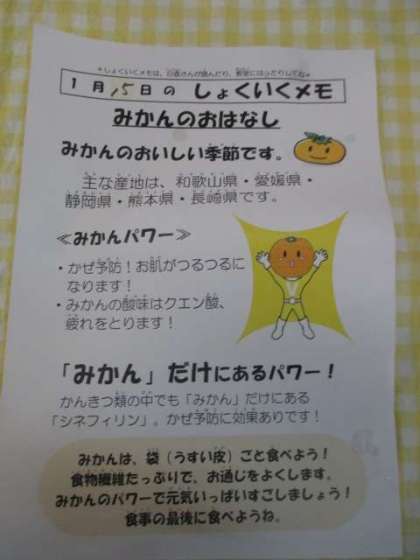 *しょくいくメモは、日直さんが読んだり、教室にはったりしてね*
1月15日の しょくいくメモ
みかんのおはなし
みかんのおいしい季節です。
主な産地は、和歌山県・愛媛県・
静岡県・熊本県・長崎県です。
≪みかんパワー≫
・かぜ予防！お肌がつるつるに
なります！
・みかんの酸味はクエン酸、
疲れをとります！
「みかん」だけにあるパワー！
かんきつ類の中でも「みかん」だけにある
「シネフィリン」。かぜ予防に効果ありです！
みかんは、袋（うすい皮）ごと食べよう！
食物繊維たっぷりで、お通じをよくします。
みかんのパワーで元気いっぱいすごしましょう！
食事の最後に食べようね。